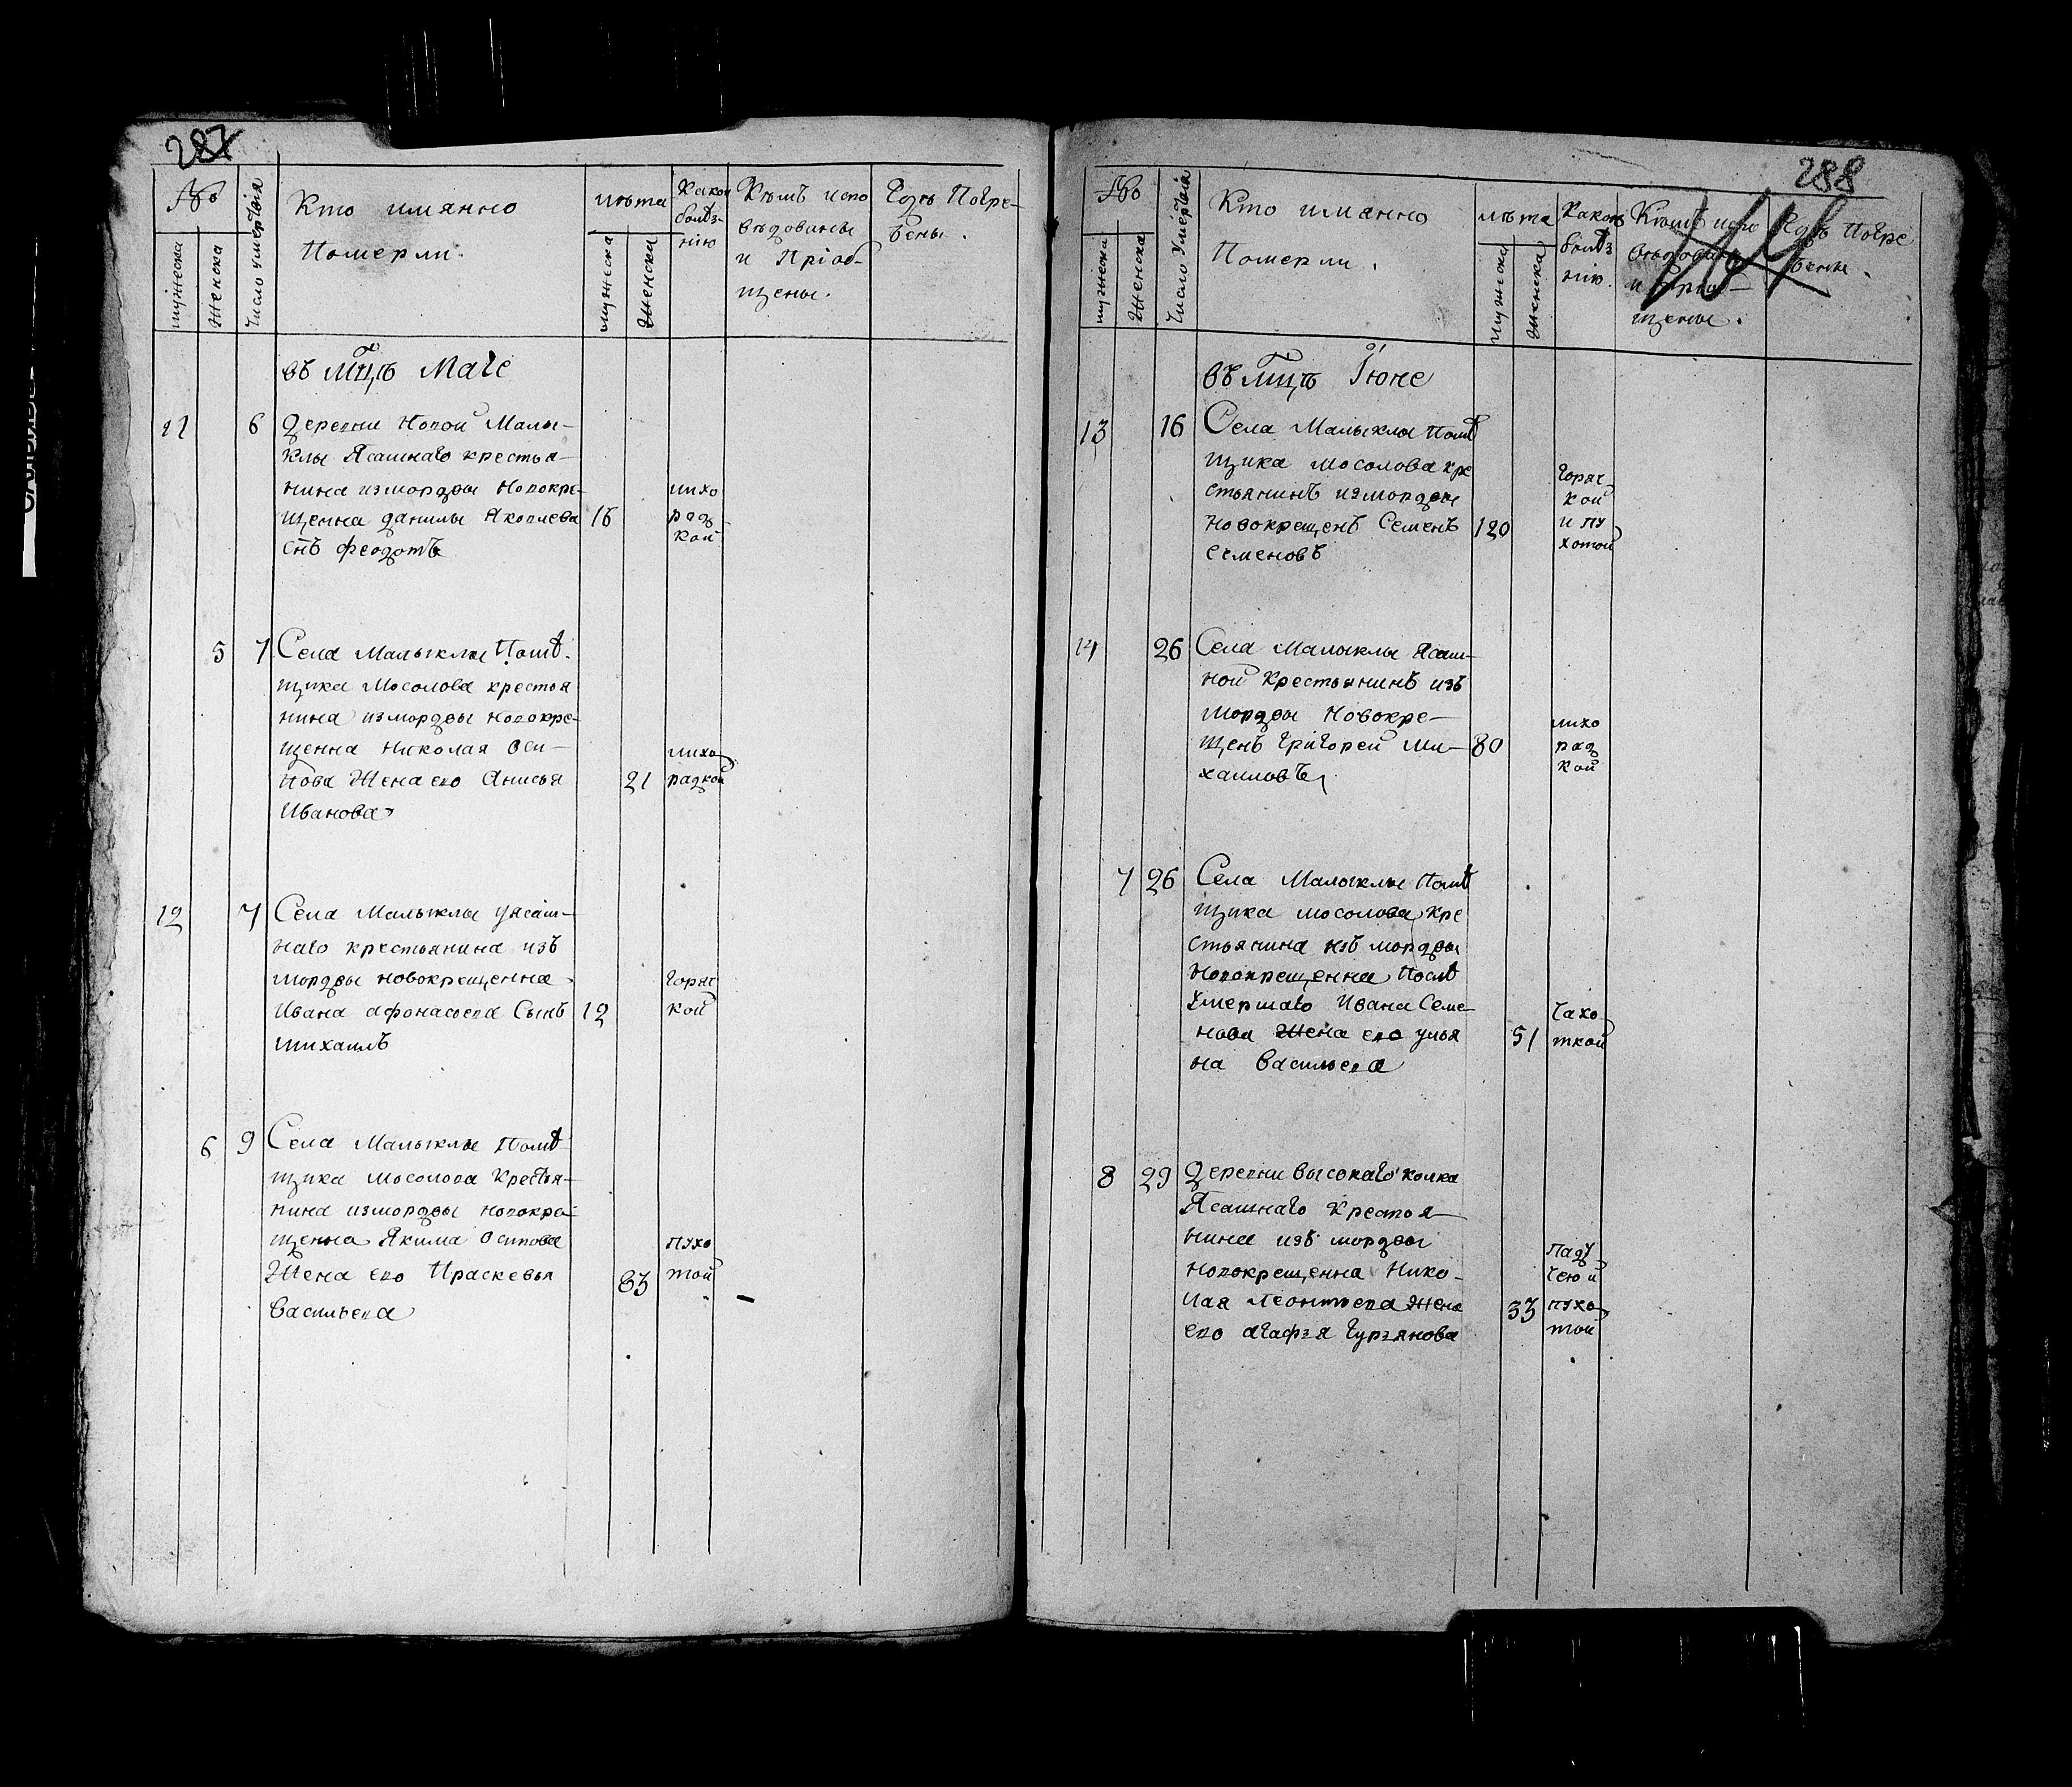 287
№
мужеска
Женска
Число умертвія
Кто имянно
Померли.
лѣта
мужеска
Женска
Какою
болѣз-
нію
Кѣмъ испо
вѣдованы
и Пріоб-
щены.
Гдѣ Погре-
бены.
въ мцѣ Маіе
11 6 деревни Новой Малы-
клы Ясашнаго крестья-
нина измордвы Новокре-
щенна данилы Яковлева 16
снъ феодотъ
лихо
рад-
кой
5 7 Села Малыклы Помѣ-
щика Мосолова крестья
нина измордвы новокре-
щенна Николая Оси-
пова Жена ево Анисья 21
Иванова
лихо
радкой
12 7 Села Малыклы уясаш-
наго крестьянина изъ
мордвы новокрещенна
Ивана афонасьева Сынъ 12
михаилъ
горяч
кой
6 9 Села Малыклы Помѣ-
щика Мосолова Крестья-
нина измордвы новокре-
щенна Якима Осипова
Жена ево Праскевья 83
Васильева
пухо
той
288
№
мужеска
Женска
Число Умертвія
Кто имянно
Померли.
лѣта
мужеска
Женска
Какою
болѣз
нію.
Кѣмъ испо
вѣдованы
и Пріоб-
щены.
Гдѣ Погре
бены.
въ мцѣ Іюне
13 16 Села Малыклы Помѣ
щика Мосолова кре
стьянинъ измордвы
новокрещенъ Семенъ 120
семеновъ
Горяч
кой
и пу
хотой
14 26 Села Малыклы Ясаш-
ной Крестьянинъ изъ
мордвы Новокре-
щенъ Григорей Ми- 80
хаиловъ
лихо
рад
кой
7 26 Села Малыклы Помѣ
щика мосолова кре
стьянина изъ мордвы
новокрещенна Послѣ
Умершаго Ивана Семе-
нова Жена ево улья 51
на Васильева
Чахо
ткой
8 29 Деревни высокаго колка
Ясашнаго Крестья-
нина изъ мордвы
новокрещенна Нико-
лая Леонтьева Жена 33
ево агафзя Гурзянова
Паду
чею и
пухо
той